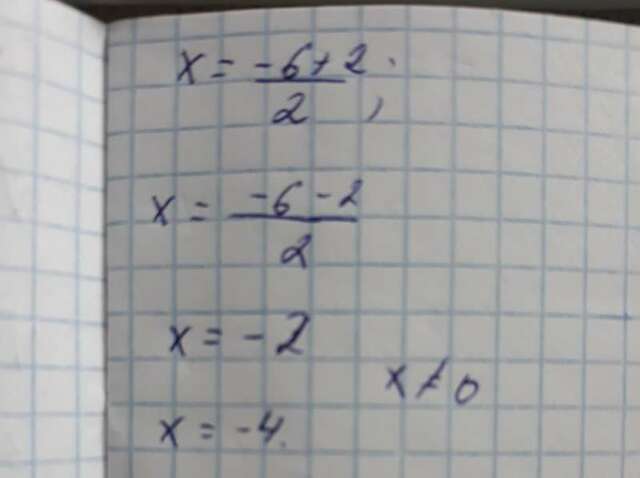 x = (-6+2)/2,
x = (-6-2)/2
x = -2
x ≠ 0
x = -4.